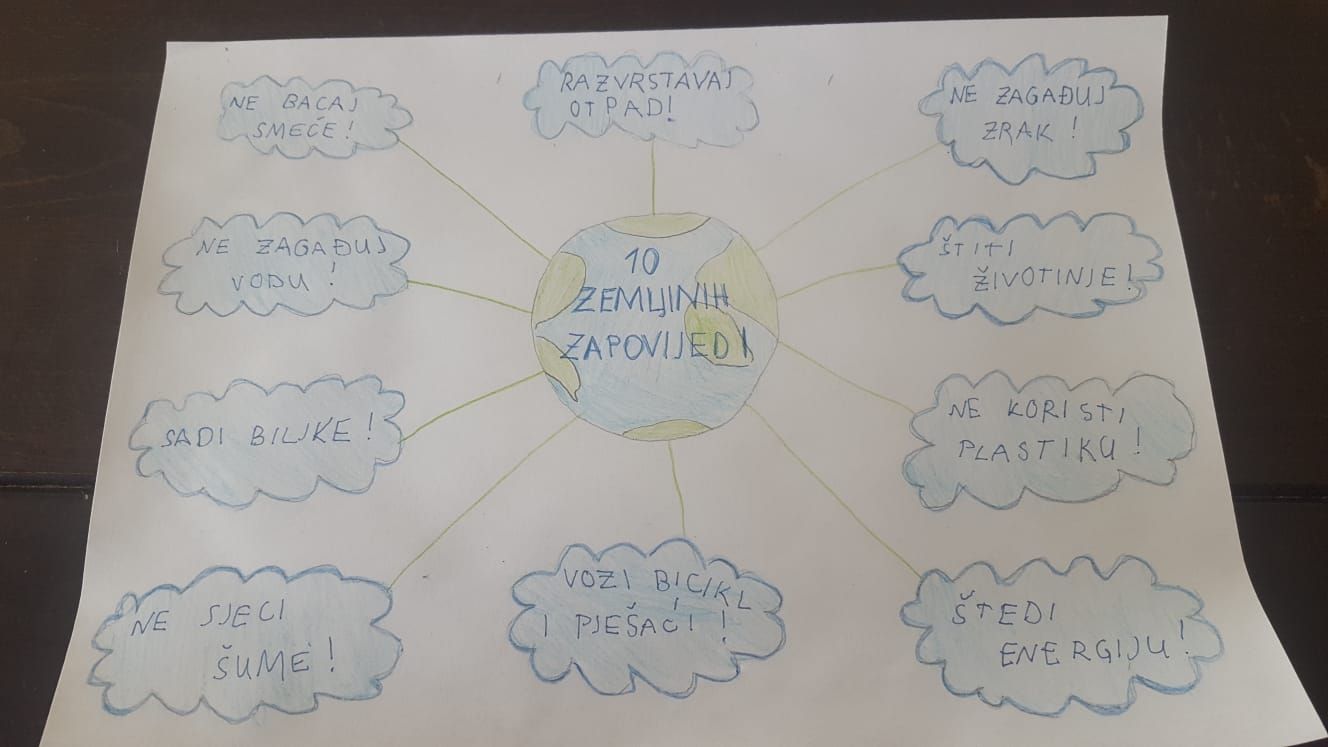 NE BACAJ
SMEĆE!
RAZVRSTAVAJ
OTPAD!
NE ZAGAĐUJ
ZRAK!
NE ZAGAĐUJ
VODU!
10
ZEMLJINIH
ZAPOVIJEDI
ŠTITI
ŽIVOTINJE!
SADI BILJKE!
NE KORISTI
PLASTIKU!
NE SJECI
ŠUME!
VOZI BICIKL
I PJEŠAĆI!
ŠTEDI
ENERGIJU!